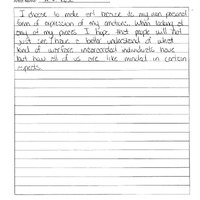 I choose to make art because its my own personal
form of expression of my emotions. When looking at
any of my pieces I hope that people will not
just see / have a better understand of what
kind of warfare incarcerated individuals have
but how all of us are like minded in certain
aspects.